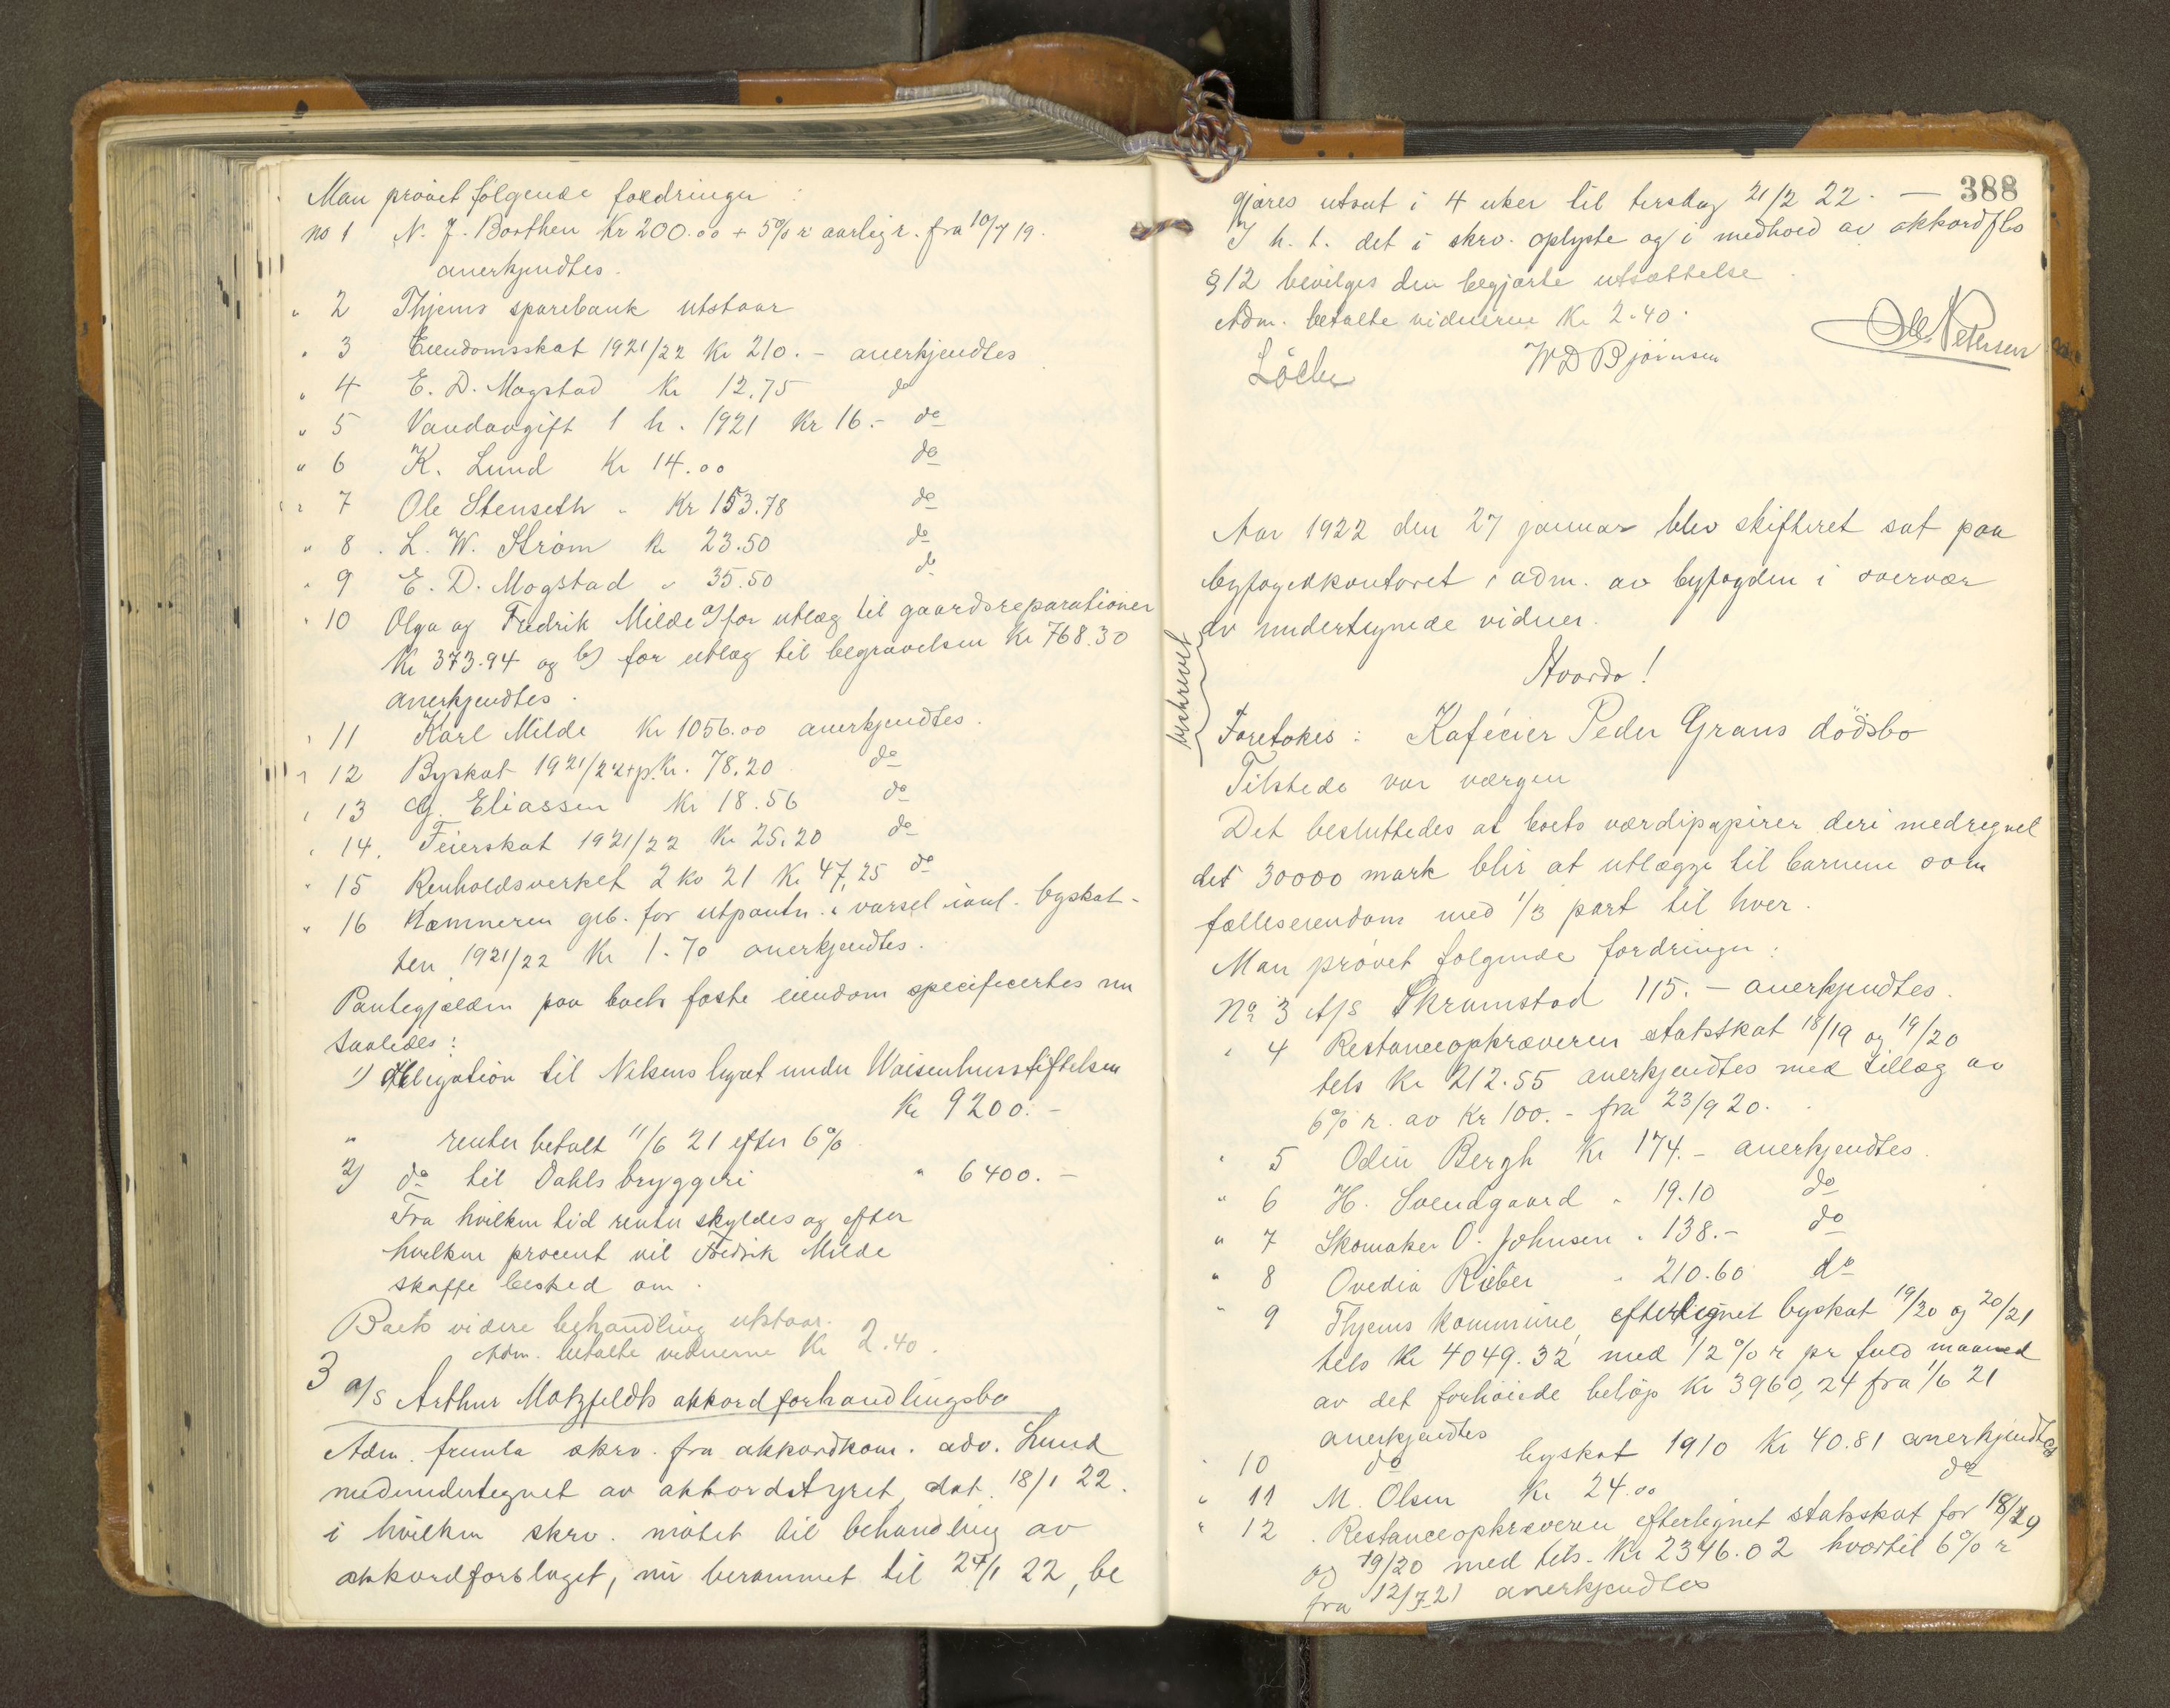 Man prøvet følgende fordringer :
no 1 N. J. Borthen Kr 200.00 + 5% r. aarlig r. fra 10/7 19.
anerkjendtes.
" 2 Thjems sparebank utstaar
" 3 Eiendomsskat 1921/22 Kr 210.- anerkjendtes
" 4 E. D. Mogstad Kr 12,75 do
" 5 Vandavgift 1 h. 1921 Kr 16.- do
" 6 K. Lund Kr 14.00 do
" 7 Ole Stenseth " Kr 153.78 do
" 8. L. W. Strøm Kr 23.50 do
" 9 E. D. Mogstad " 35.50 do
" 10 Olga og Fredrik Milde a) for utlæg til gaardsreparationer
Kr 373.94 og b) for utlæg til begravelsen Kr 768.30
anerkjendtes.
" 11 Karl Milde Kr 1056.00 anerkjendtes.
" 12 Byskat 1921/22 Kr. 78.20 do
" 13 Eliassen Kr 18.56 do
" 14. Feierskat 1921/22 Kr 25.20 do
" 15 Renholdsverket 2 kv 21 Kr 47,25 do
" 16 Kæmneren geb. for utpantn. varsel byskat-
ten 1921/22 Kr 1.70 anerkjendtes.
Pantegjælden paa boets faste eiendom specificertes nu
saaledes :
1) Obligation til Nelsens legat under Waisenhusstiftelsen
Kr 9200.-
" renter betalt 11/6 21 efter 6%
2) do til Dahls bryggeri " 6400.-
Fra hvilken tid renter skyldes og efter
hvilken procent vil Fredrik Milde
skaffe besked om.
Boets videre behandling utstaar.
Adm. betalte vidnerne Kr 2.40.
3 a/s Arthur Motzfeldts akkordforhandlingsbo
Adm. fremla skrv. fra akkordkom. adv. Lund
medundertegnet av akkordstyret, dat. 18/1 22.
i hvilken skrv. møtet til behandling av
akkordforslaget, nu berammet til 24/1 22, be
388
gjæres utsat i 4 uker til tirsdag 21/2 22. —
I h. t. det i skrv. oplyste og i medhold av akkordslo
§ 12 bevilges den begjærte utsættelse.
Adm. betalte vidnerne Kr 2.40.
Ole Petersen
W D Bjørnsen
Aar 1922 den 27 januar blev skifteret sat paa
byfogedkontoret, adm. av byfogden i overvær
av undertegnede vidner.
Hvorda !
beskrevet
Foretokes : Kaféeier Peder Grans dödsbo
Tilstede var værgen
Det besluttedes at boets værdipapirer deri medregnet
det 30000 mark blir at utlægge til barnene som
fælleseiendom med 1/3 part til hver.
Man prøvet følgende fordringer :
No 3 A/S Skrumstad 115.- anerkjendtes.
" 4 Restanceopkræveren statsskat 18/19 og 19/20
tels Kr 212.55 anerkjendtes med tillæg av
6% r. av Kr 100.- fra 23/9 20.
" 5 Odin Bergh Kr 174.- anerkjendtes.
" 6 H. Svendgaard " 19.10 do
" 7 Skomaker O. Johnsen " 138.- do
" 8 Ovedia Rieber " 210.60 do
" 9 Thjems kommune, efterlignet byskat 19/20 og 20/21
tels Kr 4049.32 med 1/2% r pr fuld maaned
av det forhøiede beløp Kr 3960,24 fra 1/6 21
anerkjendtes
" 10 do byskat 1910 Kr 40.81 anerkjendtes
" 11 M. Olsen Kr 24.00 do
" 12. Restanceopkræveren efterlignet statsskat for 18/19
og 19/20 med tels. Kr 2346.02 hvortil 6% r
fra 12/7 21 anerkjendtes